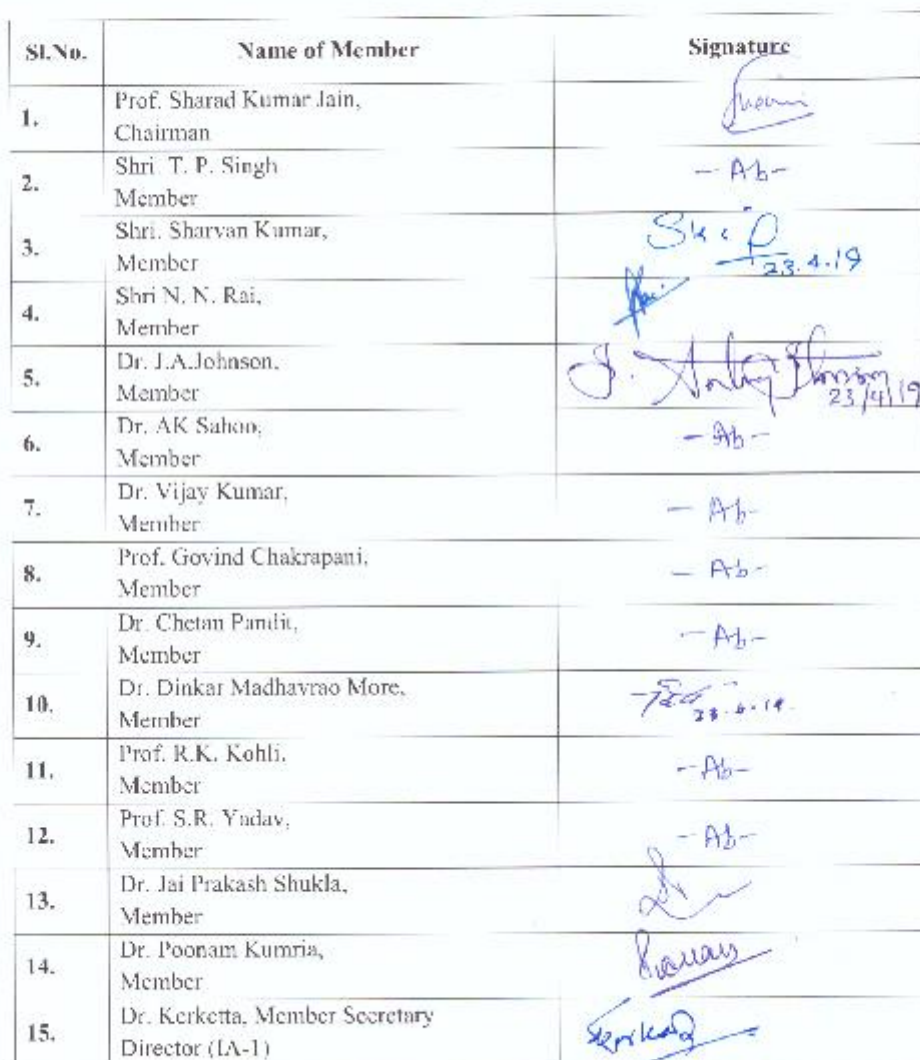 Sl.No. Name of Member Signature
1. Prof. Sharad Kumar Jain,
Chairman
2. Shri T. P. Singh - Ab -
Member
3. Shri. Sharvan Kumar,
Member 23.4.19
4. Shri N. N. Rai,
Member
5. Dr. J.A.Johnson,
Member 23/4/19
6. Dr. AK Sahoo, - Ab -
Member
7. Dr. Vijay Kumar, - Ab -
Member
8. Prof. Govind Chakrapani, - Ab -
Member
9. Dr. Chetan Pandit, - Ab -
Member
10. Dr. Dinkar Madhavrao More,
Member
11. Prof. R.K. Kohli, - Ab -
Member
12. Prof. S.R. Yadav, - Ab -
Member
13. Dr. Jai Prakash Shukla,
Member
14. Dr. Poonam Kumria,
Member
15. Dr. Kerketta, Member Secretary
Director (IA-1)